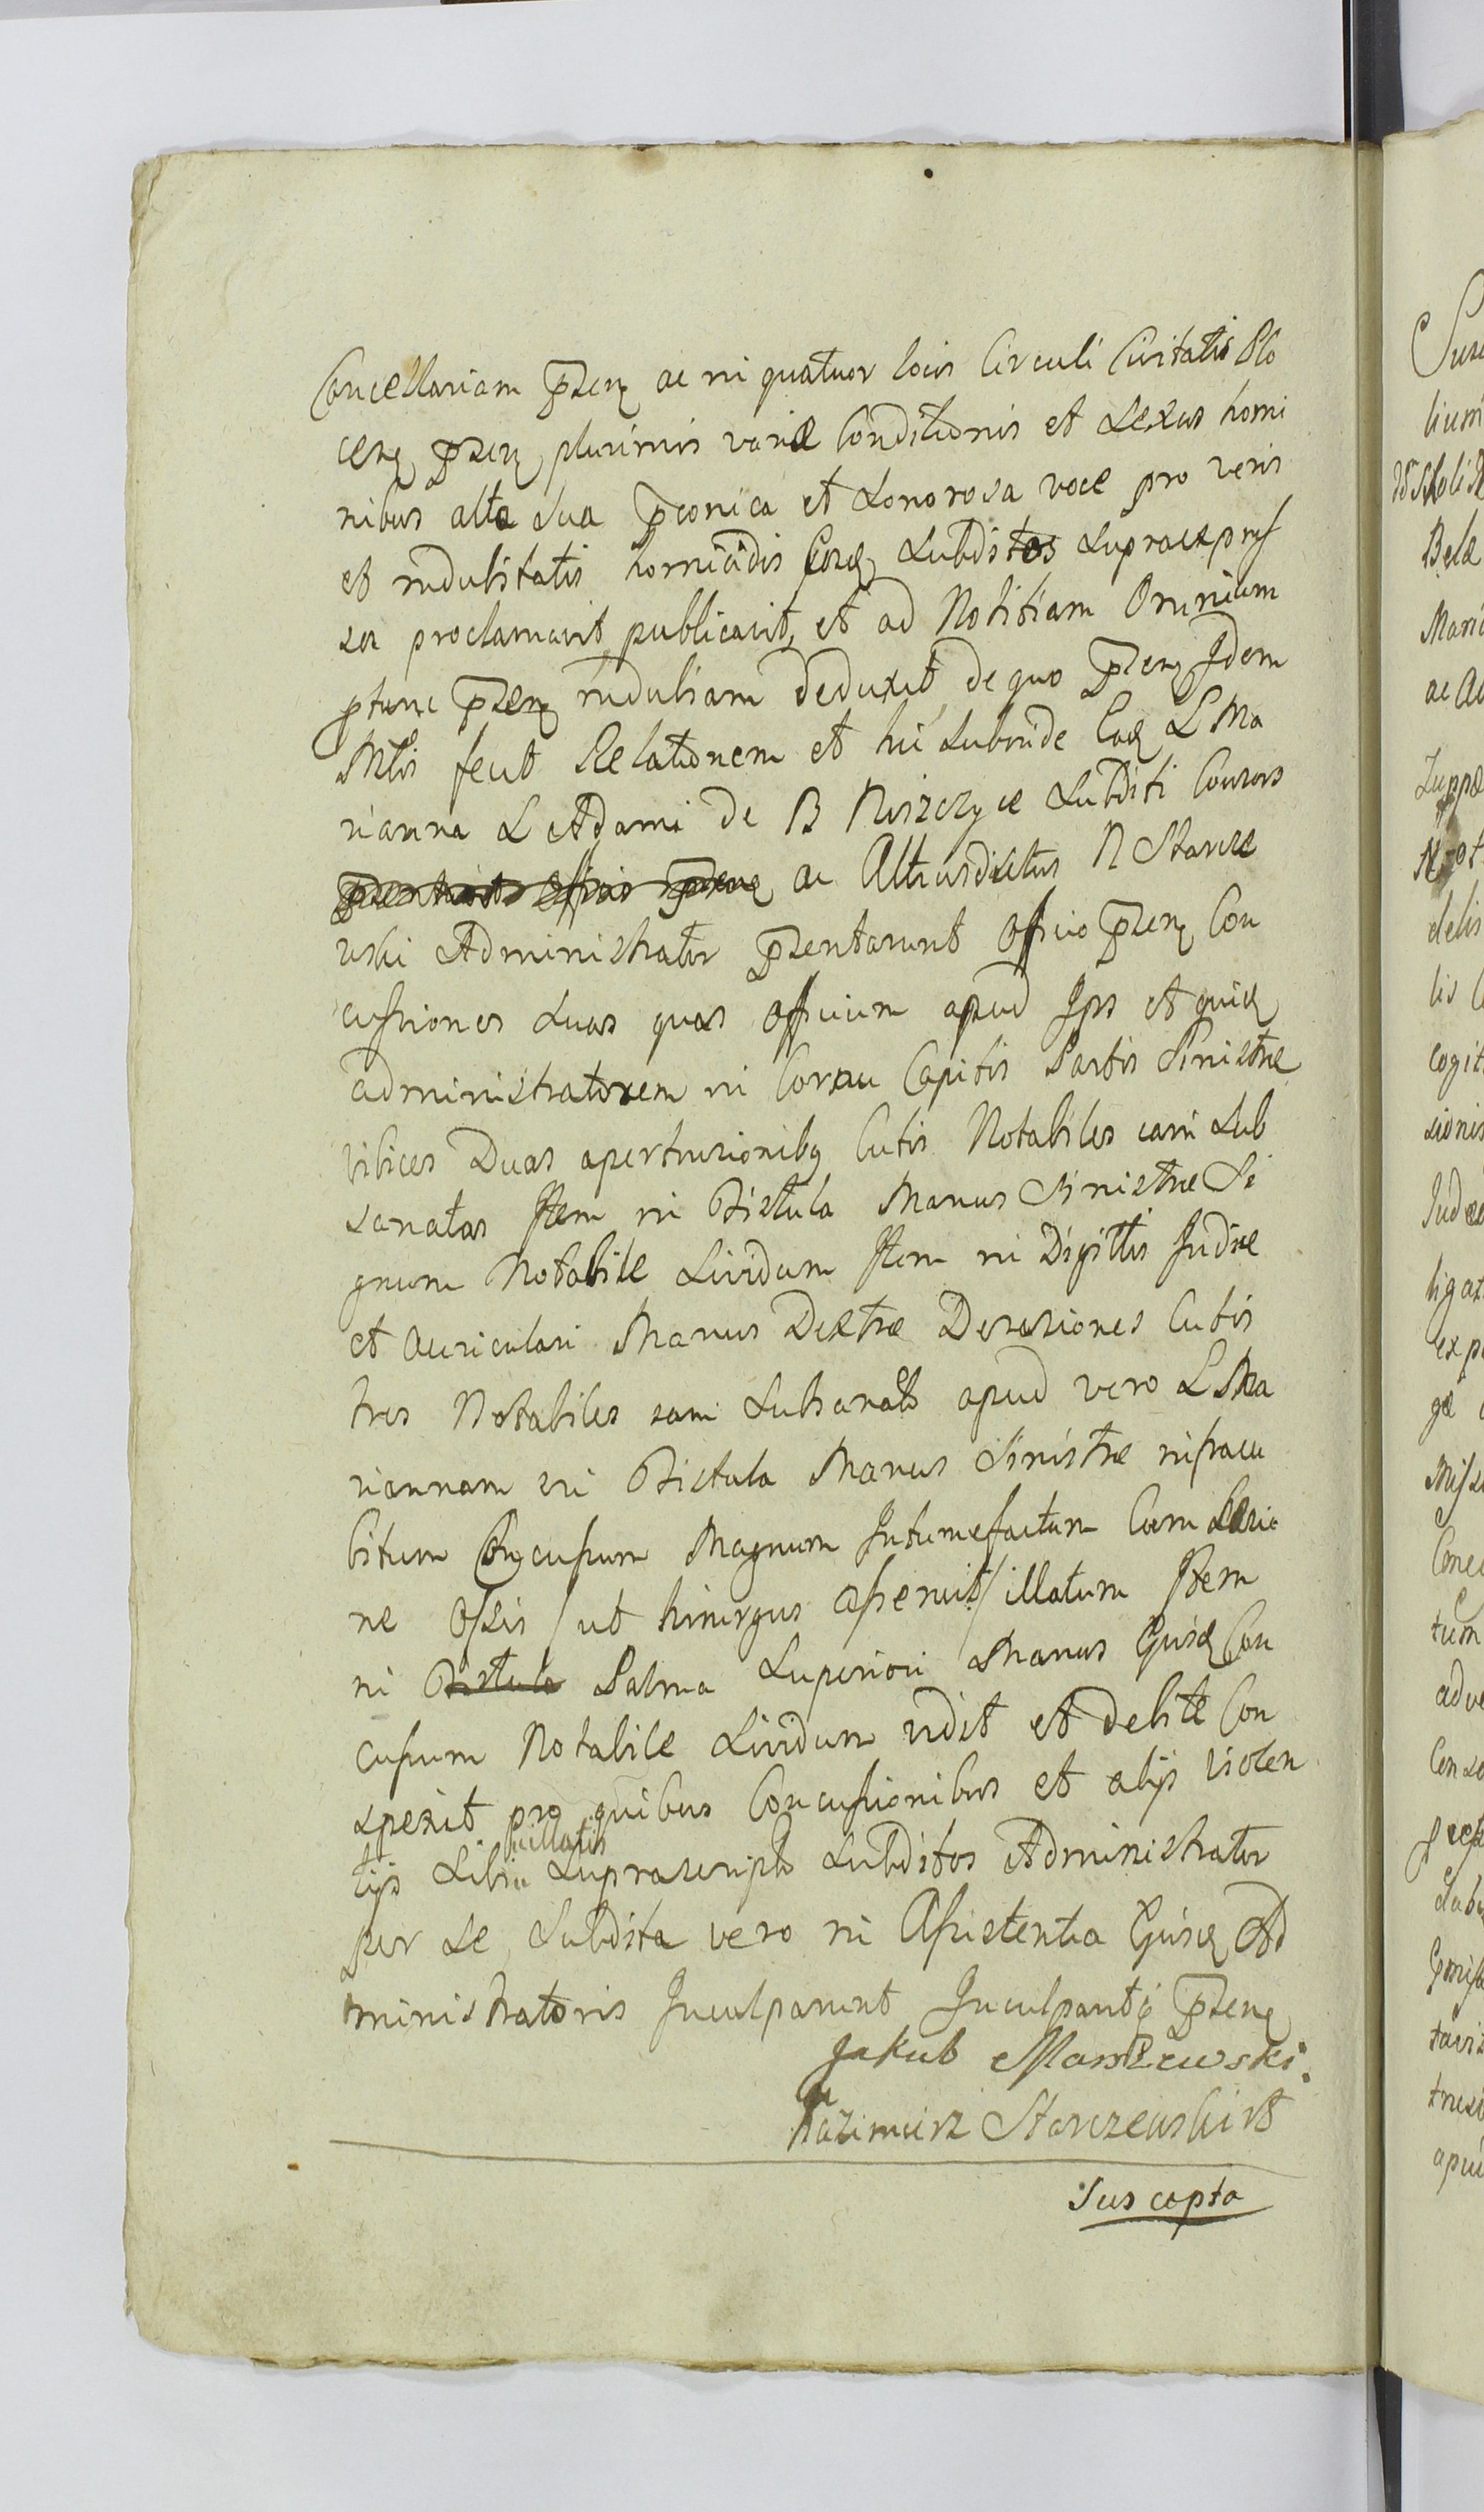 Cancellariam pzen ac in quatuor locis Circuli Civitatis Plo
cen pzen plurimis variæ Conditionis et Sexus homi
nibus alta sua pconica et Sonorosa voce pro veris
et indubitatis homicidis Eosd Subditos Supraexpres
sa proclamavit publicavit, et ad Notitiam Omnium
ptunc pzen indubiam deduxit, de quo pzen Idem
Mtlis fecit Relationem et hic Subinde Ead L Ma
rianna L Adami de B Niszczyce Subditi Consors
ac Altiusdictus N Starcze
wski Administrator pzentarunt Officio pzen Con
cussiones Suas quas Officium apud Ips et quid
administratorem in Cornu Capitis Partis Sinistræ
vibices Duas apertusionibq Cutis Notabiles iam Sub
sanatas Item in Fistula Manus Sinistræ Si
gnum Notabile Lividum Item in Digittis Indice
et Auriculari Manus Dextræ Derasiones Cutis
tres Notabiles iam Subsanatas apud vero L Ma
riannam in Fistula Manus Sinistræ infracu
bitum Concussum Magnum Intumefactum Cum Læsio
ne Ossis / ut hirurgus asseruit / illatum Item
in Fistula Palma Superiori Manus Ejusd Con
cussum Notabile Lividum vidit et debite Con
spexit pro quibus Concussionibus et alijs Violen
tijs Sibi illatis Suprascriptos Subditos Administrator
per Se, Subdita vero in Assistentia Ejusd Ad
ministratoris Inculparunt Inculpantq pzen
Jakub Marszewski.
Kazimierz Starczewski
Suscepta